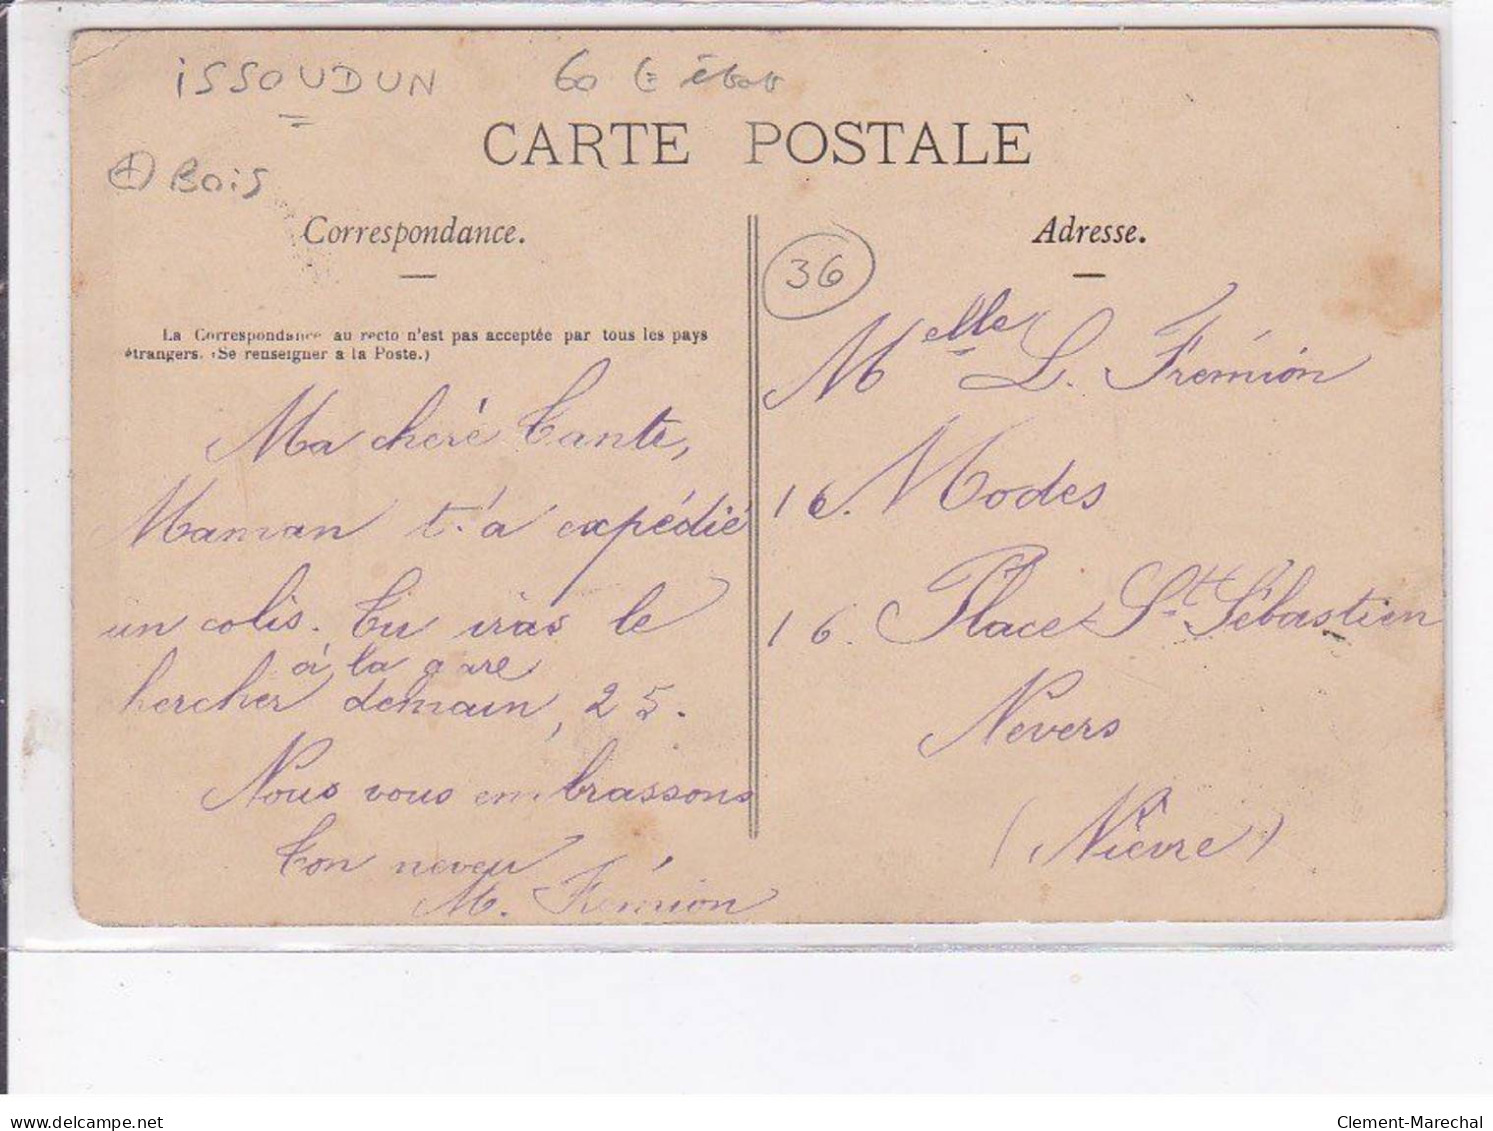 ISSOUDUN 60
CARTE POSTALE
+ Bois
Correspondance.
La Correspondance au recto n'est pas acceptée par tous les pays
étrangers. (Se renseigner a la Poste.)
Ma chéré Tante,
Maman t'a expédié
un colis. Tu iras le
à la gare
chercher demain, 25.
Nous vous embrassons
Ton neveu
M. Frémion
36
Adresse.
Melle L. Frémion
16. Modes
16. Place St Sébastien
Nevers
(Nièvre)
delcampe.net
Clement-Marechal